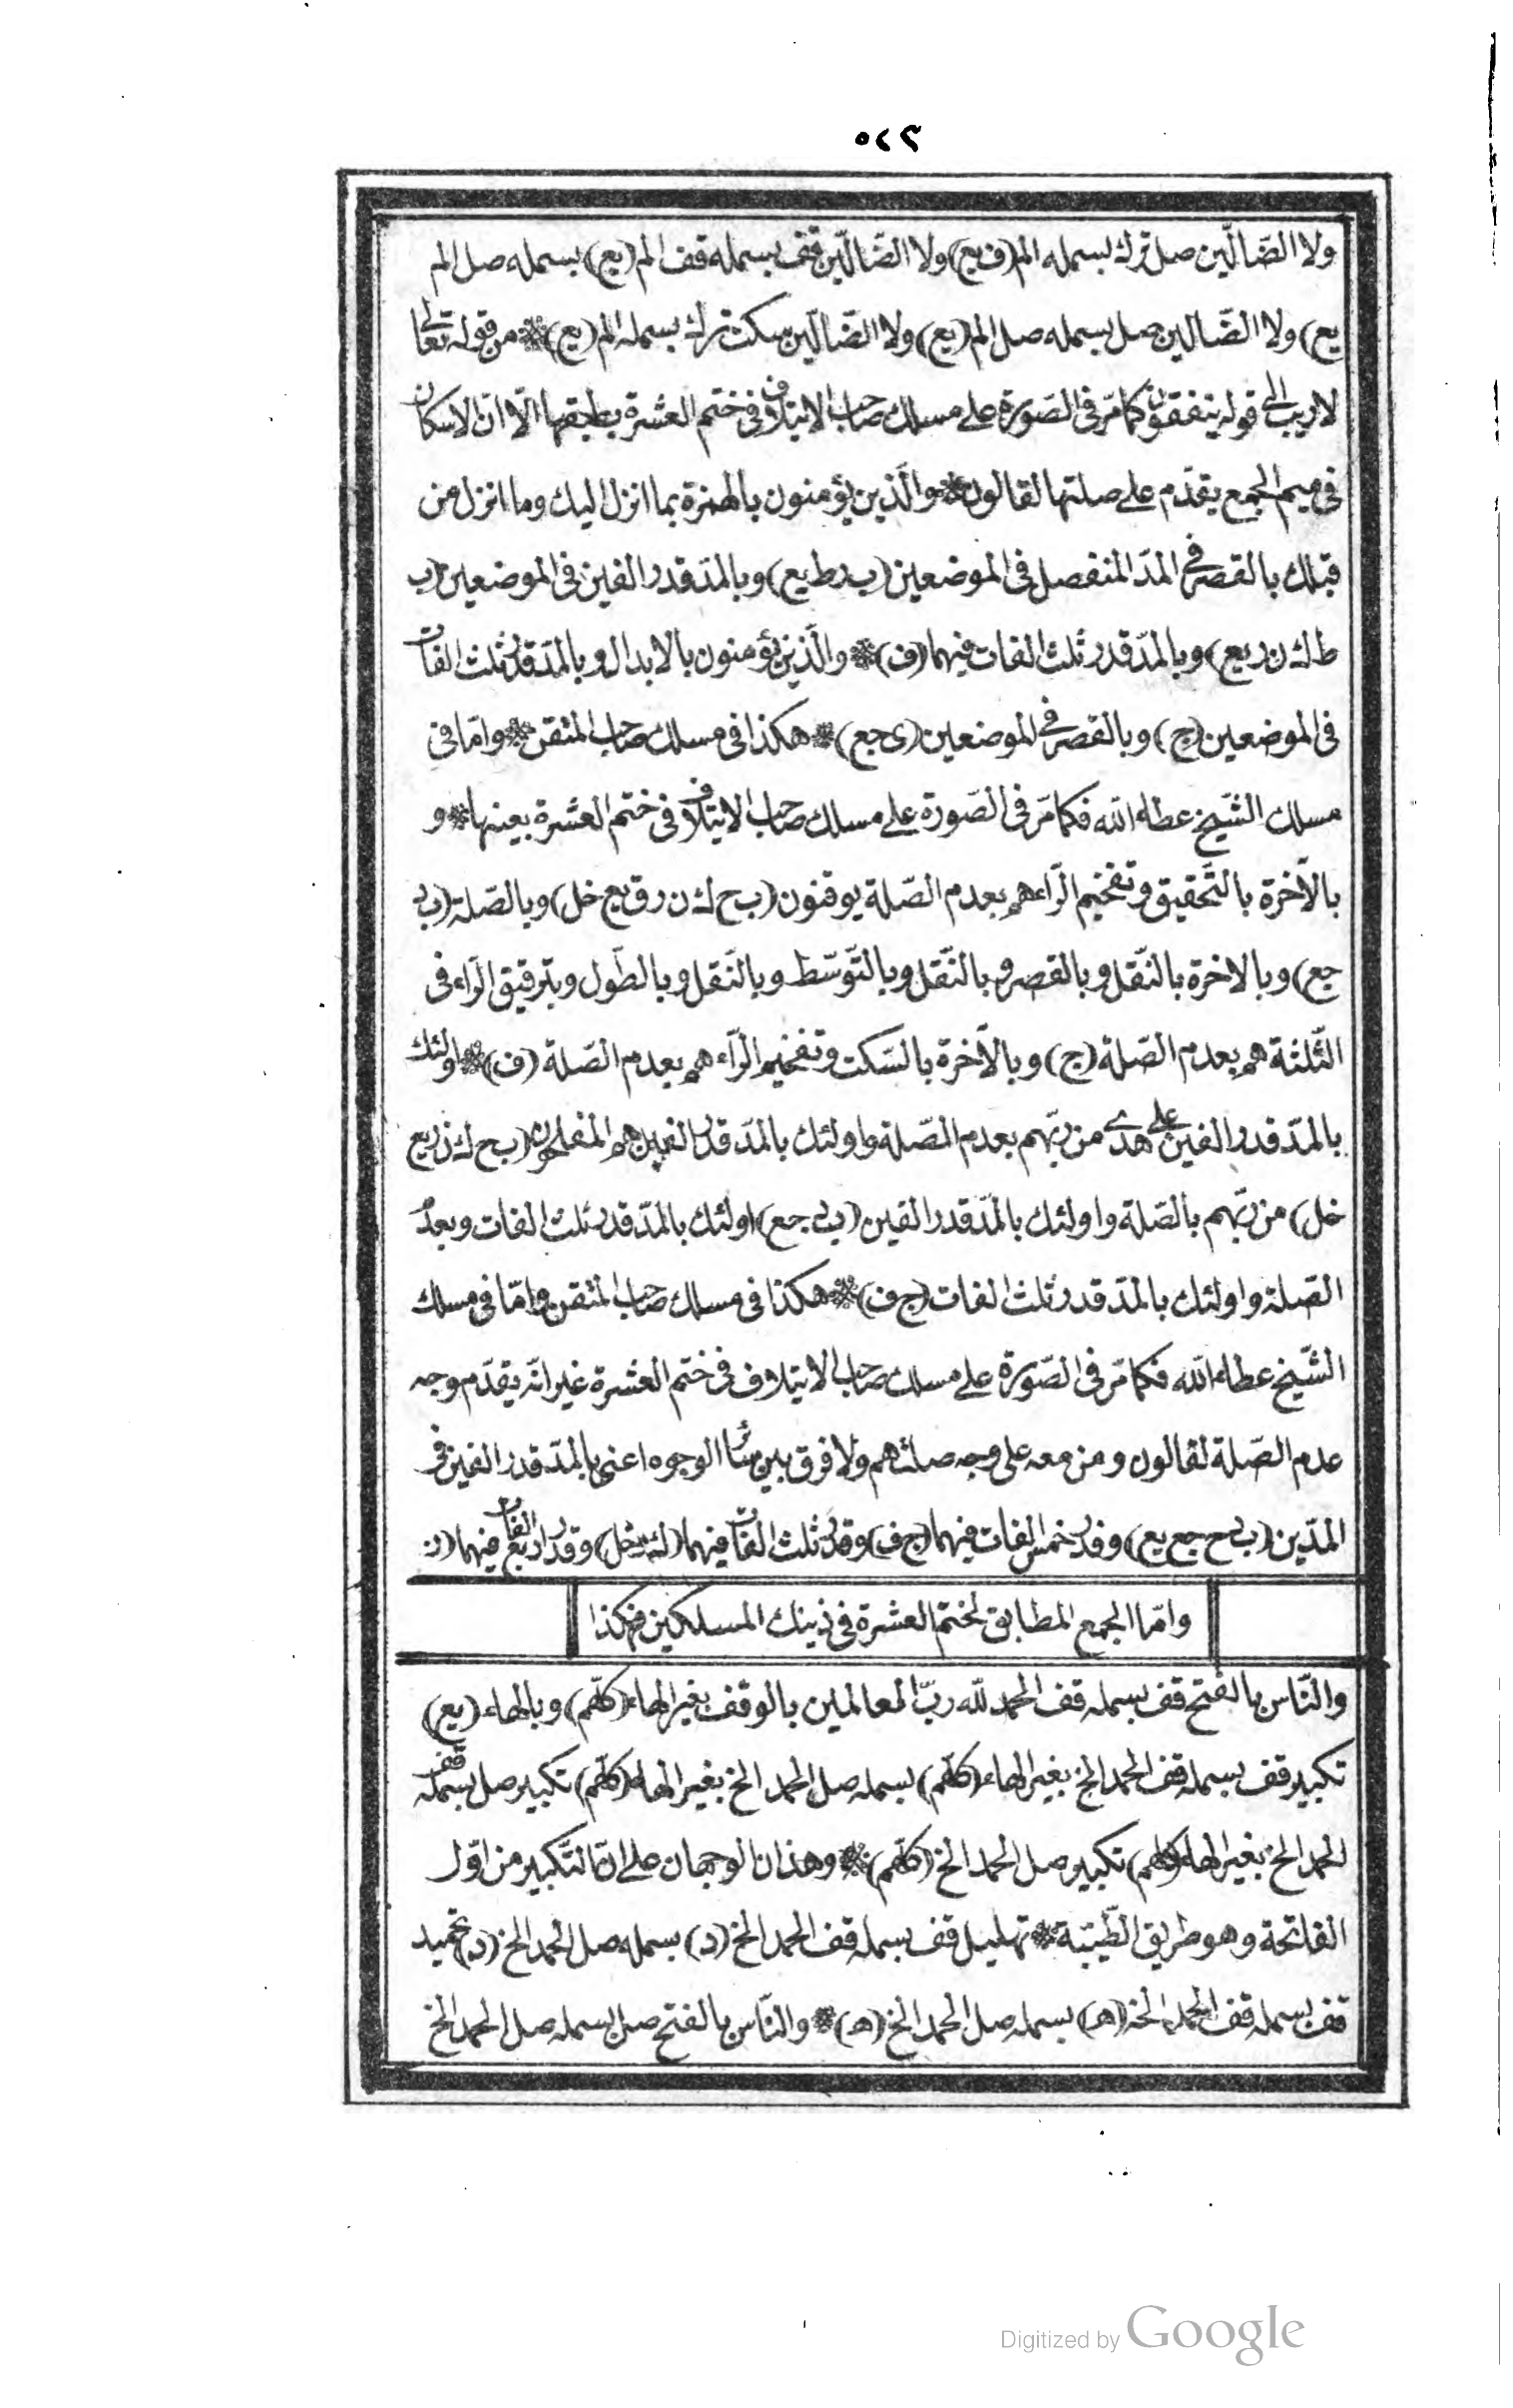 ٥٢٩
ولا الضّالّين صل ترك بسمله الم (ف يع) ولا الضّالّين قف بسمله قف الم (يع) بسمله صل الم
يع) ولا الضّالين صل بسمله صل الم (يع) ولا الضّالّين سكت ترك بسمله الم (يع) ۞ من قوله تعالى
لا ريب الى قوله ينفقون كما مرّ فى الصّورة على مسلك صاحب الايتلاف فى ختم العشرة بطبقها الّا انّ الاسكان
فى ميم الجمع يقدّم على صلتها لقالون ۞ والّذين يؤمنون بالهمزة بما انزل اليك وما انزل من
قبلك بالقصر فى المدّ المنفصل فى الموضعين (ب د ط يع) وبالمدّ قدر الفين فى الموضعين (ب
ط ك ن ر يع) وبالمدّ قدر ثلث الفات فيهما (ف) ۞ والّذين يؤمنون بالابدال وبالمدّ قدر ثلث الفات
فى الموضعين (ج) وبالقصر فى الموضعين (ى جع) ۞ هكذا فى مسلك صاحب المتقن ۞ وامّا فى
مسلك الشّيخ عطاء الله فكما مرّ فى الصّورة على مسلك صاحب الايتلاف فى ختم العشرة بعينها ۞ و
بالآخرة بالتّحقيق وتفخيم الرّاء هم بعدم الصّلة يوقنون (ب ح ك ن ر ق يع خل) وبالصّلة (ب د
جع) وبالاخرة بالنّقل وبالقصر وبالنّقل وبالتّوسّط وبالنّقل وبالطّول وبترقيق الرّاء فى
الثّلثة هم بعدم الصّلة (ج) وبالآخرة بالسّكت وتفخيم الرّاء هم بعدم الصّلة (ف) ۞ اولئك
بالمدّ قدر الفين على هدى من ربّهم بعدم الصّلة واولئك بالمدّ قدر الفين هم المفلحون (ب ح ك ن ر يع
خل) من ربّهم بالصّلة واولئك بالمدّ قدر الفين (ب د جع) اولئك بالمدّ قدر ثلث الفات وبعدم
الصّلة واولئك بالمدّ قدر ثلث الفات (ج ف) ۞ هكذا فى مسلك صاحب المتقن وامّا فى مسلك
الشّيخ عطاء الله فكما مرّ فى الصّورة على مسلك صاحب الايتلاف فى ختم العشرة غير انّه يقدّم وجه
عدم الصّلة لقالون ومن معه على وجه صلتهم ولا فرق بين سائر الوجوه اعنى بالمدّ قدر الفين فى
المدّين (ب د ح جع يع) وقدر خمس الفات فيهما (ج ف) وقدر ثلث الفات فيهما (ك خل) وقدر اربع الفات فيهما (ن
وامّا الجمع المطابق لختم العشرة فى ذينك المسلكين فهكذا
والنّاس بالفتح قف بسمله قف الحمد لله ربّ العالمين بالوقف بغير الهاء (كلّهم) وبالهاء (يع)
تكبير قف بسمله قف الحمد الخ بغير الهاء (كلّهم) بسمله صل الحمد الخ بغير الهاء (كلّهم) تكبير صل بسمله قف
الحمد الخ بغير الهاء (كلهم) تكبير صل الحمد الخ (كلّهم) ۞ وهذان الوجهان على انّ التّكبير من اوّل
الفاتحة وهو طريق الطّيّبة ۞ تهليل قف بسمله قف الحمد الخ (د) بسمله صل الحمد الخ (د) تحميد
قف بسمله قف الحمد الخ (ه) بسمله صل الحمد الخ (ه) ۞ والنّاس بالفتح صل بسمله صل الحمد الخ
Digitized by Google